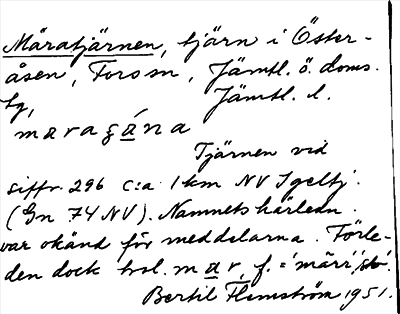 Märatjärnen, tjärn i Öster-
åsen, Fors sn, Jämtl. ö. doms.
tg, Jämtl. l.
maragána
Tjärnen vid
siffr. 296 c:a 1 km NV Igeltj.
(Gn 74 NV). Namnets härledn.
var okänd för meddelarna. Förle-
den dock trol. mar, f. = 'märr', 'sto'.
Bertil Flemström 1951.